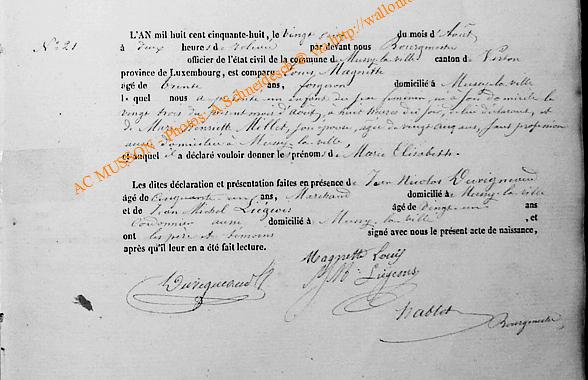 N° 21
L'AN mil huit cent cinquante-huit, le vingt du mois d'Août
à deux heures de relevée par devant nous Bourgmestre
officier de l'état civil de la commune de Mussy-la-ville canton de Virton
province de Luxembourg, est comparu Louis Magnette
âgé de trente ans, forgeron domicilié à Mussy-la-ville
lequel nous a présenté un enfant du sexe féminin, né à son domicile le
vingt trois du présent mois d'août, à huit heures du soir, de lui déclarant, et
de Marie Henriette Mellet, son épouse, âgée de vingt cinq ans, sans profession
aussi domiciliée à Mussy-la-ville,
et auquel il a déclaré vouloir donner le prénom de Marie Elisabeth.
Les dites déclaration et présentation faites en présence de Jean Nicolas Duvigneaud
âgé de cinquante ans, Marchand domicilié à Mussy-la-ville
et de Jean Michel Liégeois âgé de vingt ans
Cordonnier aussi domicilié à Mussy-la-ville, et
ont les père et témoins signé avec nous le présent acte de naissance,
après qu'il leur en a été fait lecture.
Magnette Louis
Duvigneaud
Bourgmestre
AC MUSSON - Photos: A Schneidesch © via http://wallon